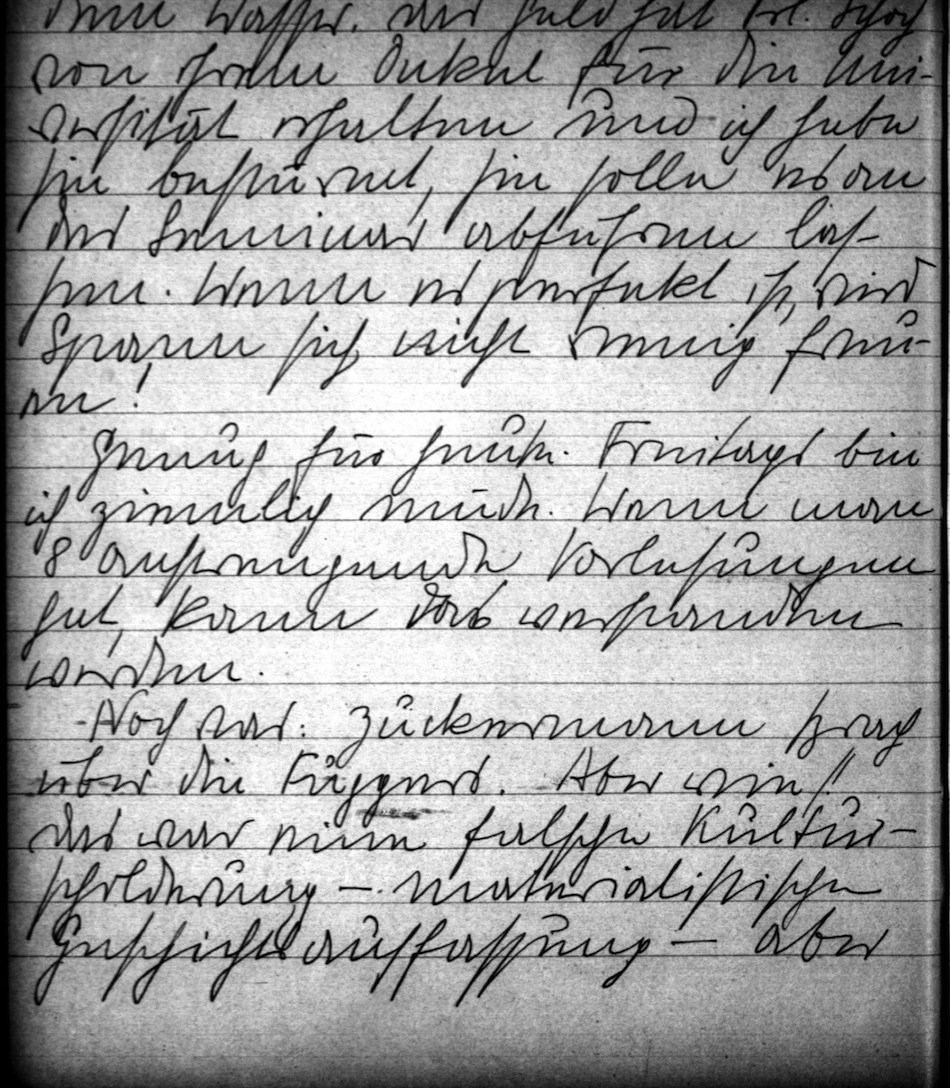 dem Wasser. Das Geld hat Frl. Schoch
von ihrem Onkel für die Uni-
versität erhalten und ich habe
sie bestürmt, sie solle es an
das Seminar abführen las-
sen. Wenn es perfekt ist, wird
Spann sich nicht wenig freu-
en!
Genug für heute. Freitags bin
ich ziemlich müde. Wenn man
8 anstrengende Vorlesungen
hat, kann das verstanden
werden.
Noch was: Zuckermann sprach
über die Fuggers. Aber wie!
das war eine falsche Kultur-
schilderung – materialistische
Geschichtsauffassung – aber